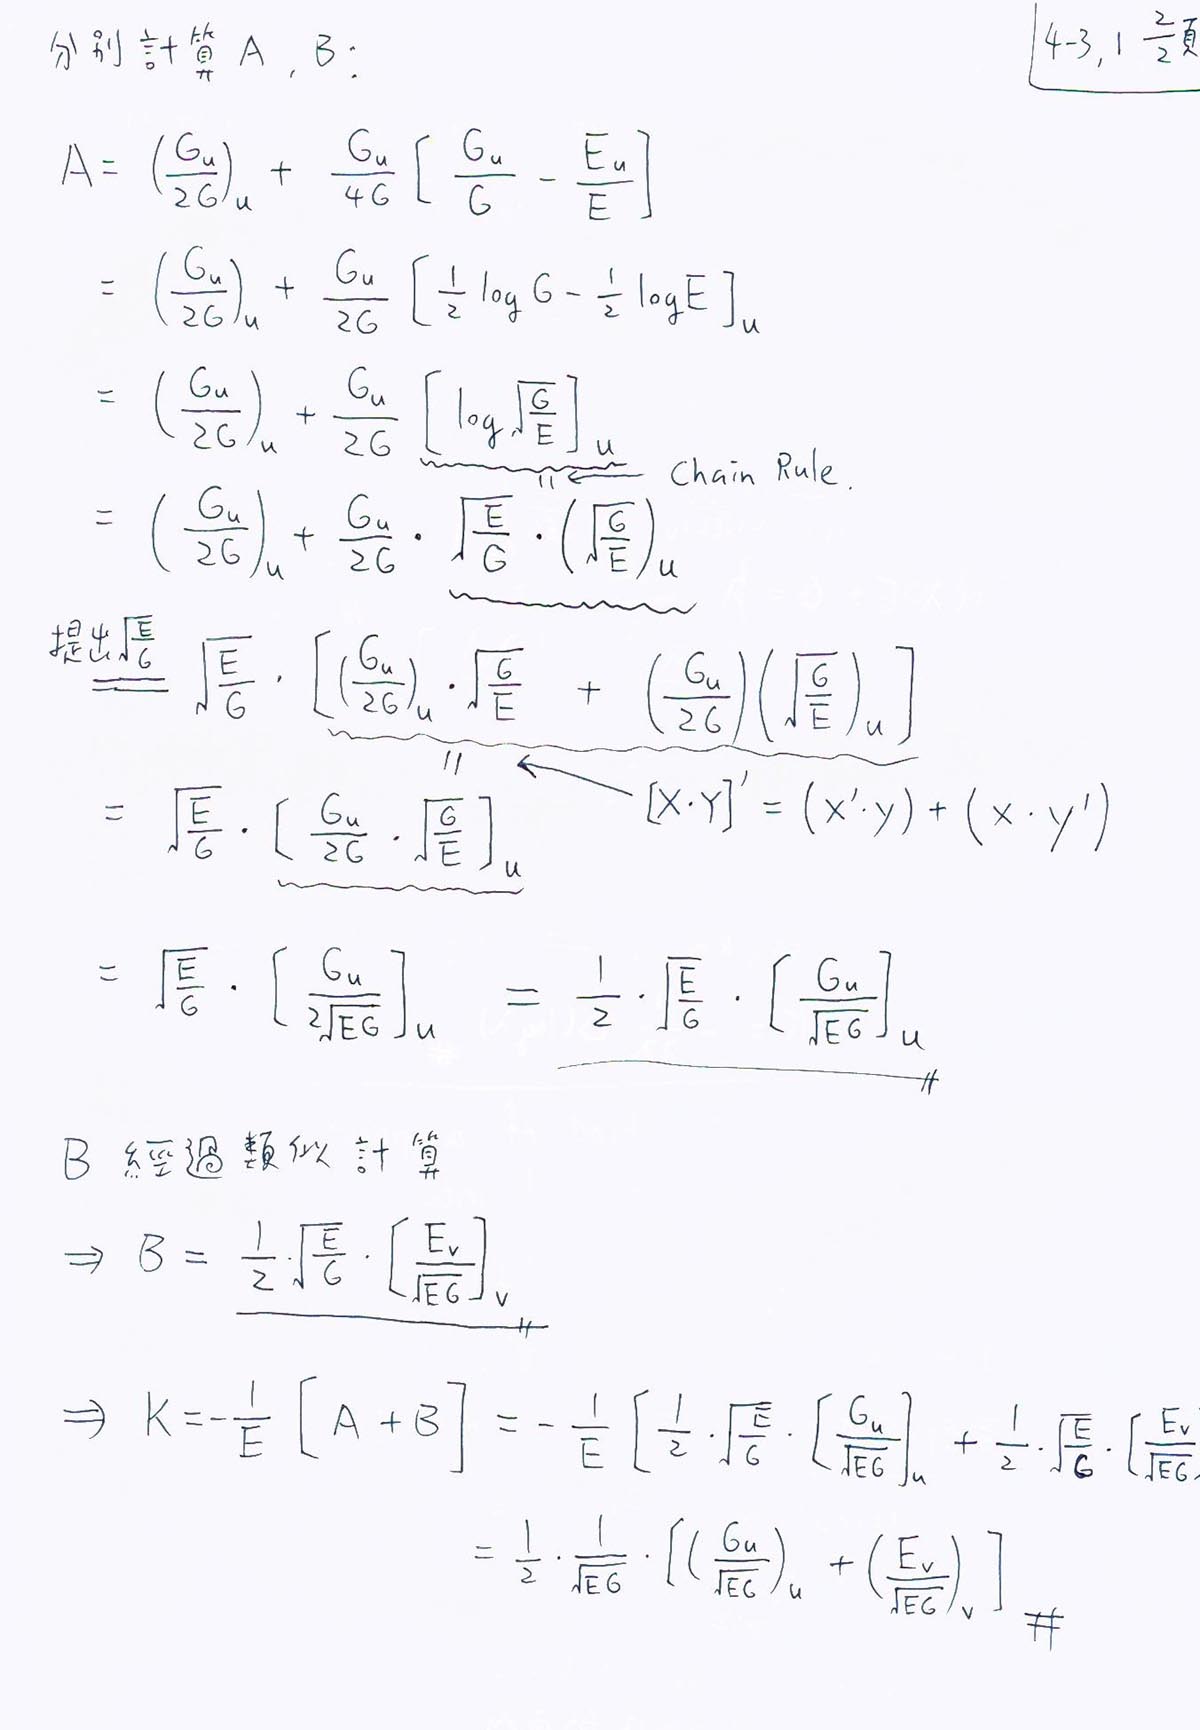 分別計算 A , B :
4-3, 1 2/2 頁
A = (Gu/2G)u + Gu/4G [Gu/G - Eu/E]
= (Gu/2G)u + Gu/2G [1/2 log G - 1/2 log E]u
= (Gu/2G)u + Gu/2G [log √(G/E)]u
" ← Chain Rule.
= (Gu/2G)u + Gu/2G · √(E/G) · (√(G/E))u
提出√(E/G) = √(E/G) · [(Gu/2G)u · √(G/E) + (Gu/2G)(√(G/E))u]
" ← [X·Y]' = (X'·y) + (x·y')
= √(E/G) · [Gu/2G · √(G/E)]u
= √(E/G) · [Gu/2√EG]u = 1/2 · √(E/G) · [Gu/√EG]u #
B 經過類似計算
⇒ B = 1/2 · √(E/G) · [Ev/√EG]v #
⇒ K = - 1/E [A + B] = - 1/E [1/2 · √(E/G) · [Gu/√EG]u + 1/2 · √(E/G) · [Ev/√EG
= 1/2 · 1/√EG · [(Gu/√EG)u + (Ev/√EG)v] #